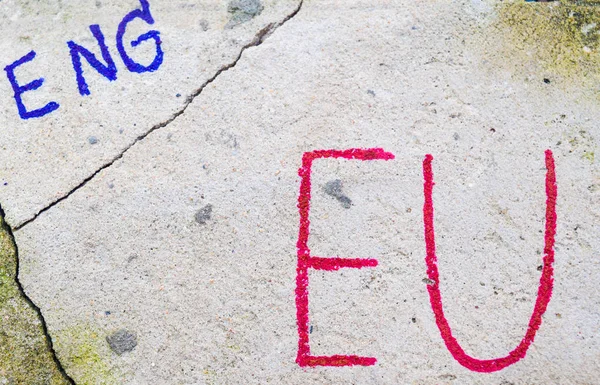 ENG
EU